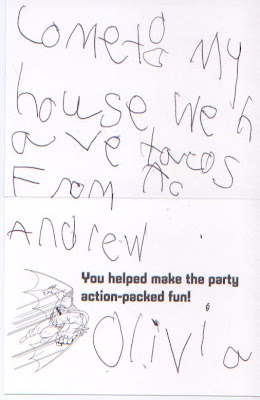 Come to My
house We h
ave tacos
From
Andrew
You helped make the party
action-packed fun!
Olivia